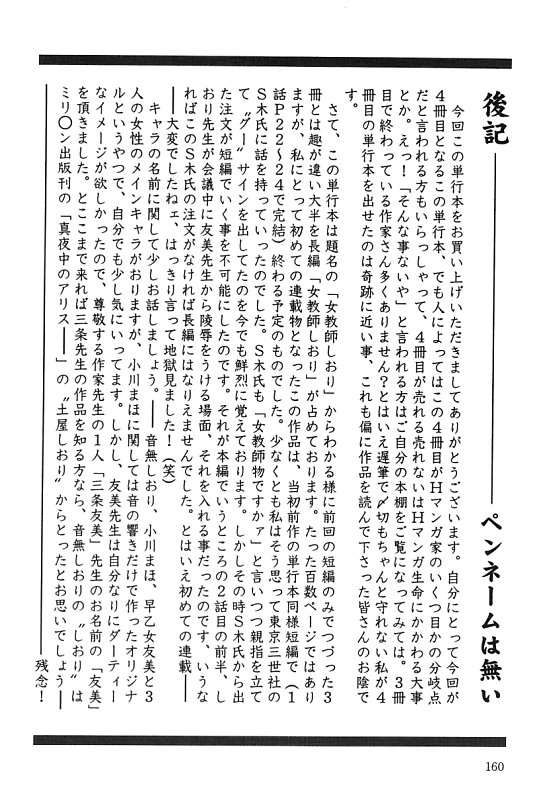 後記
ペンネームは無い
今回この単行本をお買い上げいただきましてありがとうございます。自分にとって今回が
4冊目となるこの単行本、でも人によってはこの4冊目がHマンガ家のいくつ目かの分岐点
だと言われる方もいらっしゃって、4冊目が売れる売れないはHマンガ生命にかかわる大事
とか。えっ！「そんな事ないや」と言われる方はご自分の本棚をご覧になってみては。3冊
目で終わっている作家さん多くありません？とはいえ遅筆で〆切もちゃんと守れない私が4
冊目の単行本を出せたのは奇跡に近い事、これも偏に作品を読んで下さった皆さんのお陰で
す。
さて、この単行本は題名の「女教師しおり」からわかる様に前回の短編のみでつづった3
冊とは趣が違い大半を長編「女教師しおり」が占めております。たった百数ページではあり
ますが、私にとって初めての連載物となったこの作品は、当初前作の単行本同様短編で（1
話P22〜24で完結）終わる予定のものでした。少なくとも私はそう思って東京三世社の
S木氏に話を持っていったのでした。S木氏も「女教師物ですかァ」と言いつつ親指を立て
て〝グー〟サインを出してたのを今でも鮮烈に覚えております。しかしその時S木氏から出
た注文が短編でいく事を不可能にしたのです。それが本編でいうところの2話目の前半、し
おり先生が会議中に友美先生から陵辱をうける場面、それを入れる事だったのです、いうな
ればこのS木氏の注文がなければ長編にはなりえませんでした。とはいえ初めての連載──
──大変でしたねェ、はっきり言って地獄見ました！（笑）
キャラの名前に関して少しお話しましょう。──音無しおり、小川まほ、早乙女友美と3
人の女性のメインキャラがおりますが、小川まほに関しては音の響きだけで作ったオリジナ
ルというやつで、自分でも少し気にいってます。しかし、友美先生は自分なりにダーティー
なイメージが欲しかったので、尊敬する作家先生の1人「三条友美」先生のお名前の「友美」
を頂きました。とここまで来れば三条先生の作品を知る方なら、音無しおりの〝しおり〟は
ミリ〇ン出版刊の「真夜中のアリス──」の〝土屋しおり〟からとったとお思いでしょう──
──残念！
160